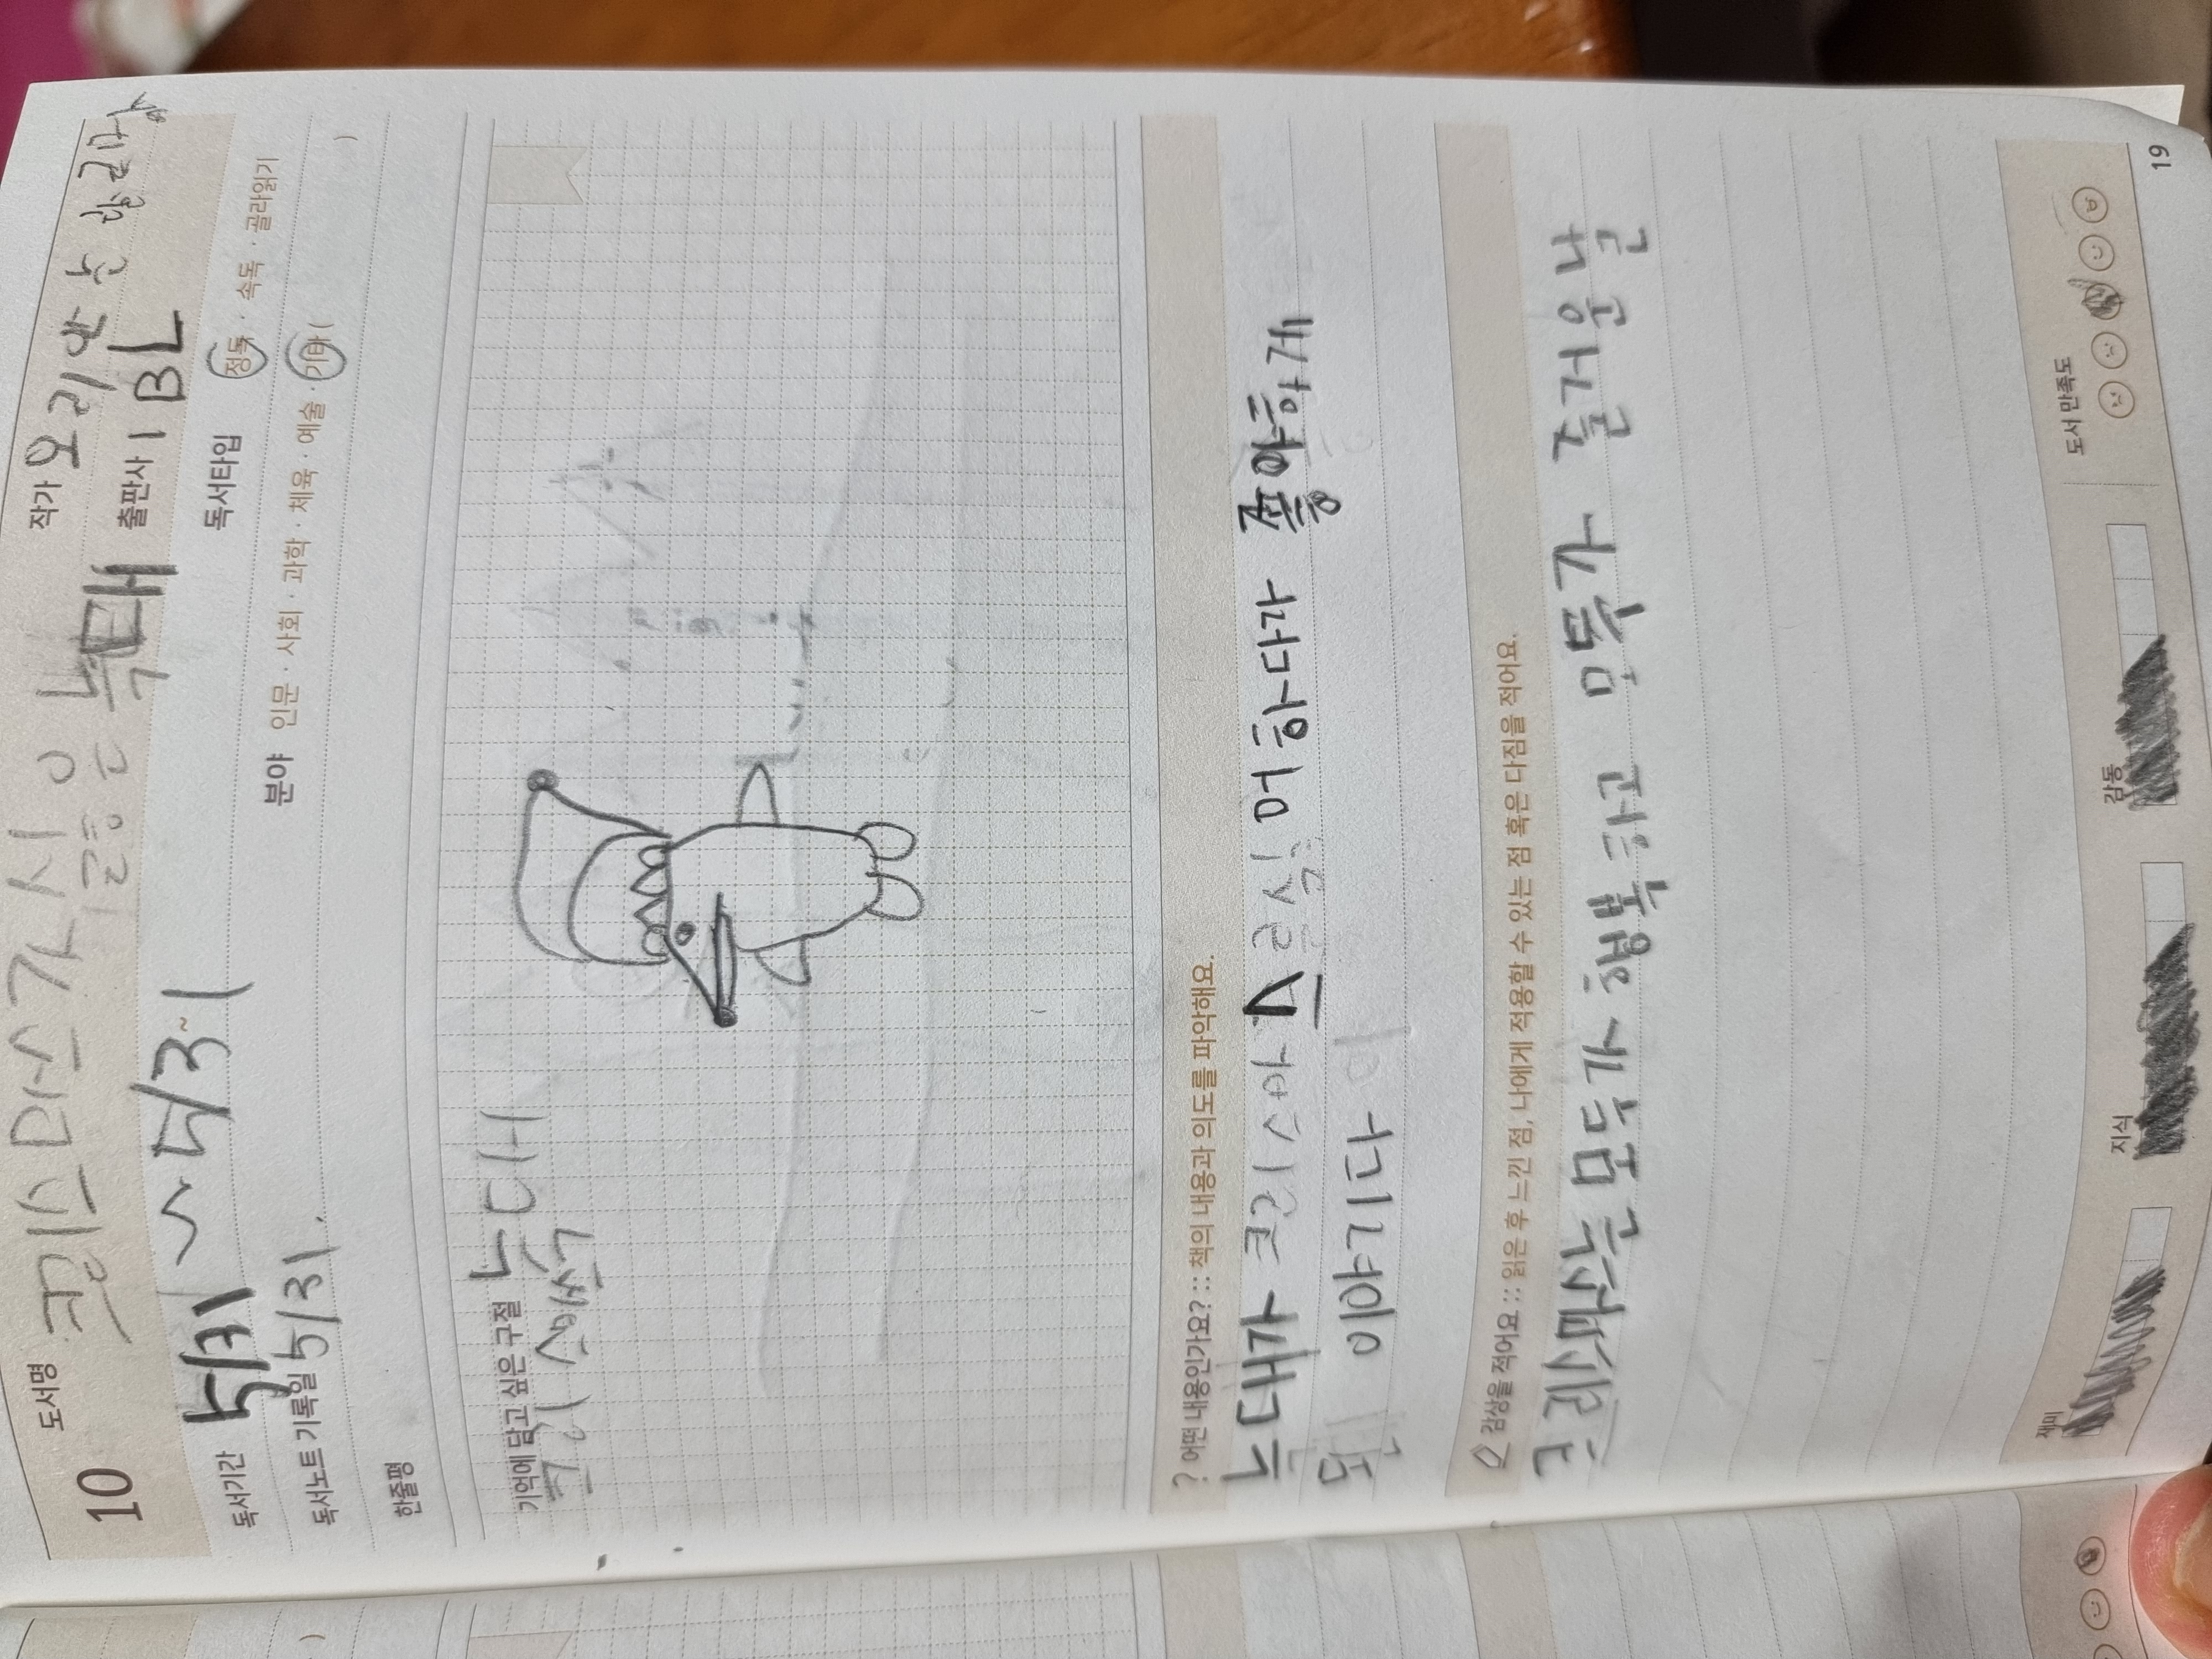 10 도서명 크리스마스가 싫은 늑대 작가 오리안느
출판사 IBL
독서기간 5/31 ~ 5/31 독서타입 정독 · 속독 · 골라읽기
독서노트 기록일 5/31. 분야 인문 · 사회 · 과학 · 체육 · 예술 · 기타 ( )
한줄평
기억에 담고 싶은 구절 늑대
크리
? 어떤 내용인가요? :: 책의 내용과 의도를 파악해요.
늑대가 크리스마스를 싫어하다가 좋아하게
된 이야기다
감상을 적어요 :: 읽은 후 느낀 점, 나에게 적용할 수 있는 점 혹은 다짐을 적어요.
크리스마스는 모두가 행복하고 모두가 즐거운 날
재미
지식
감동
도서 만족도
19